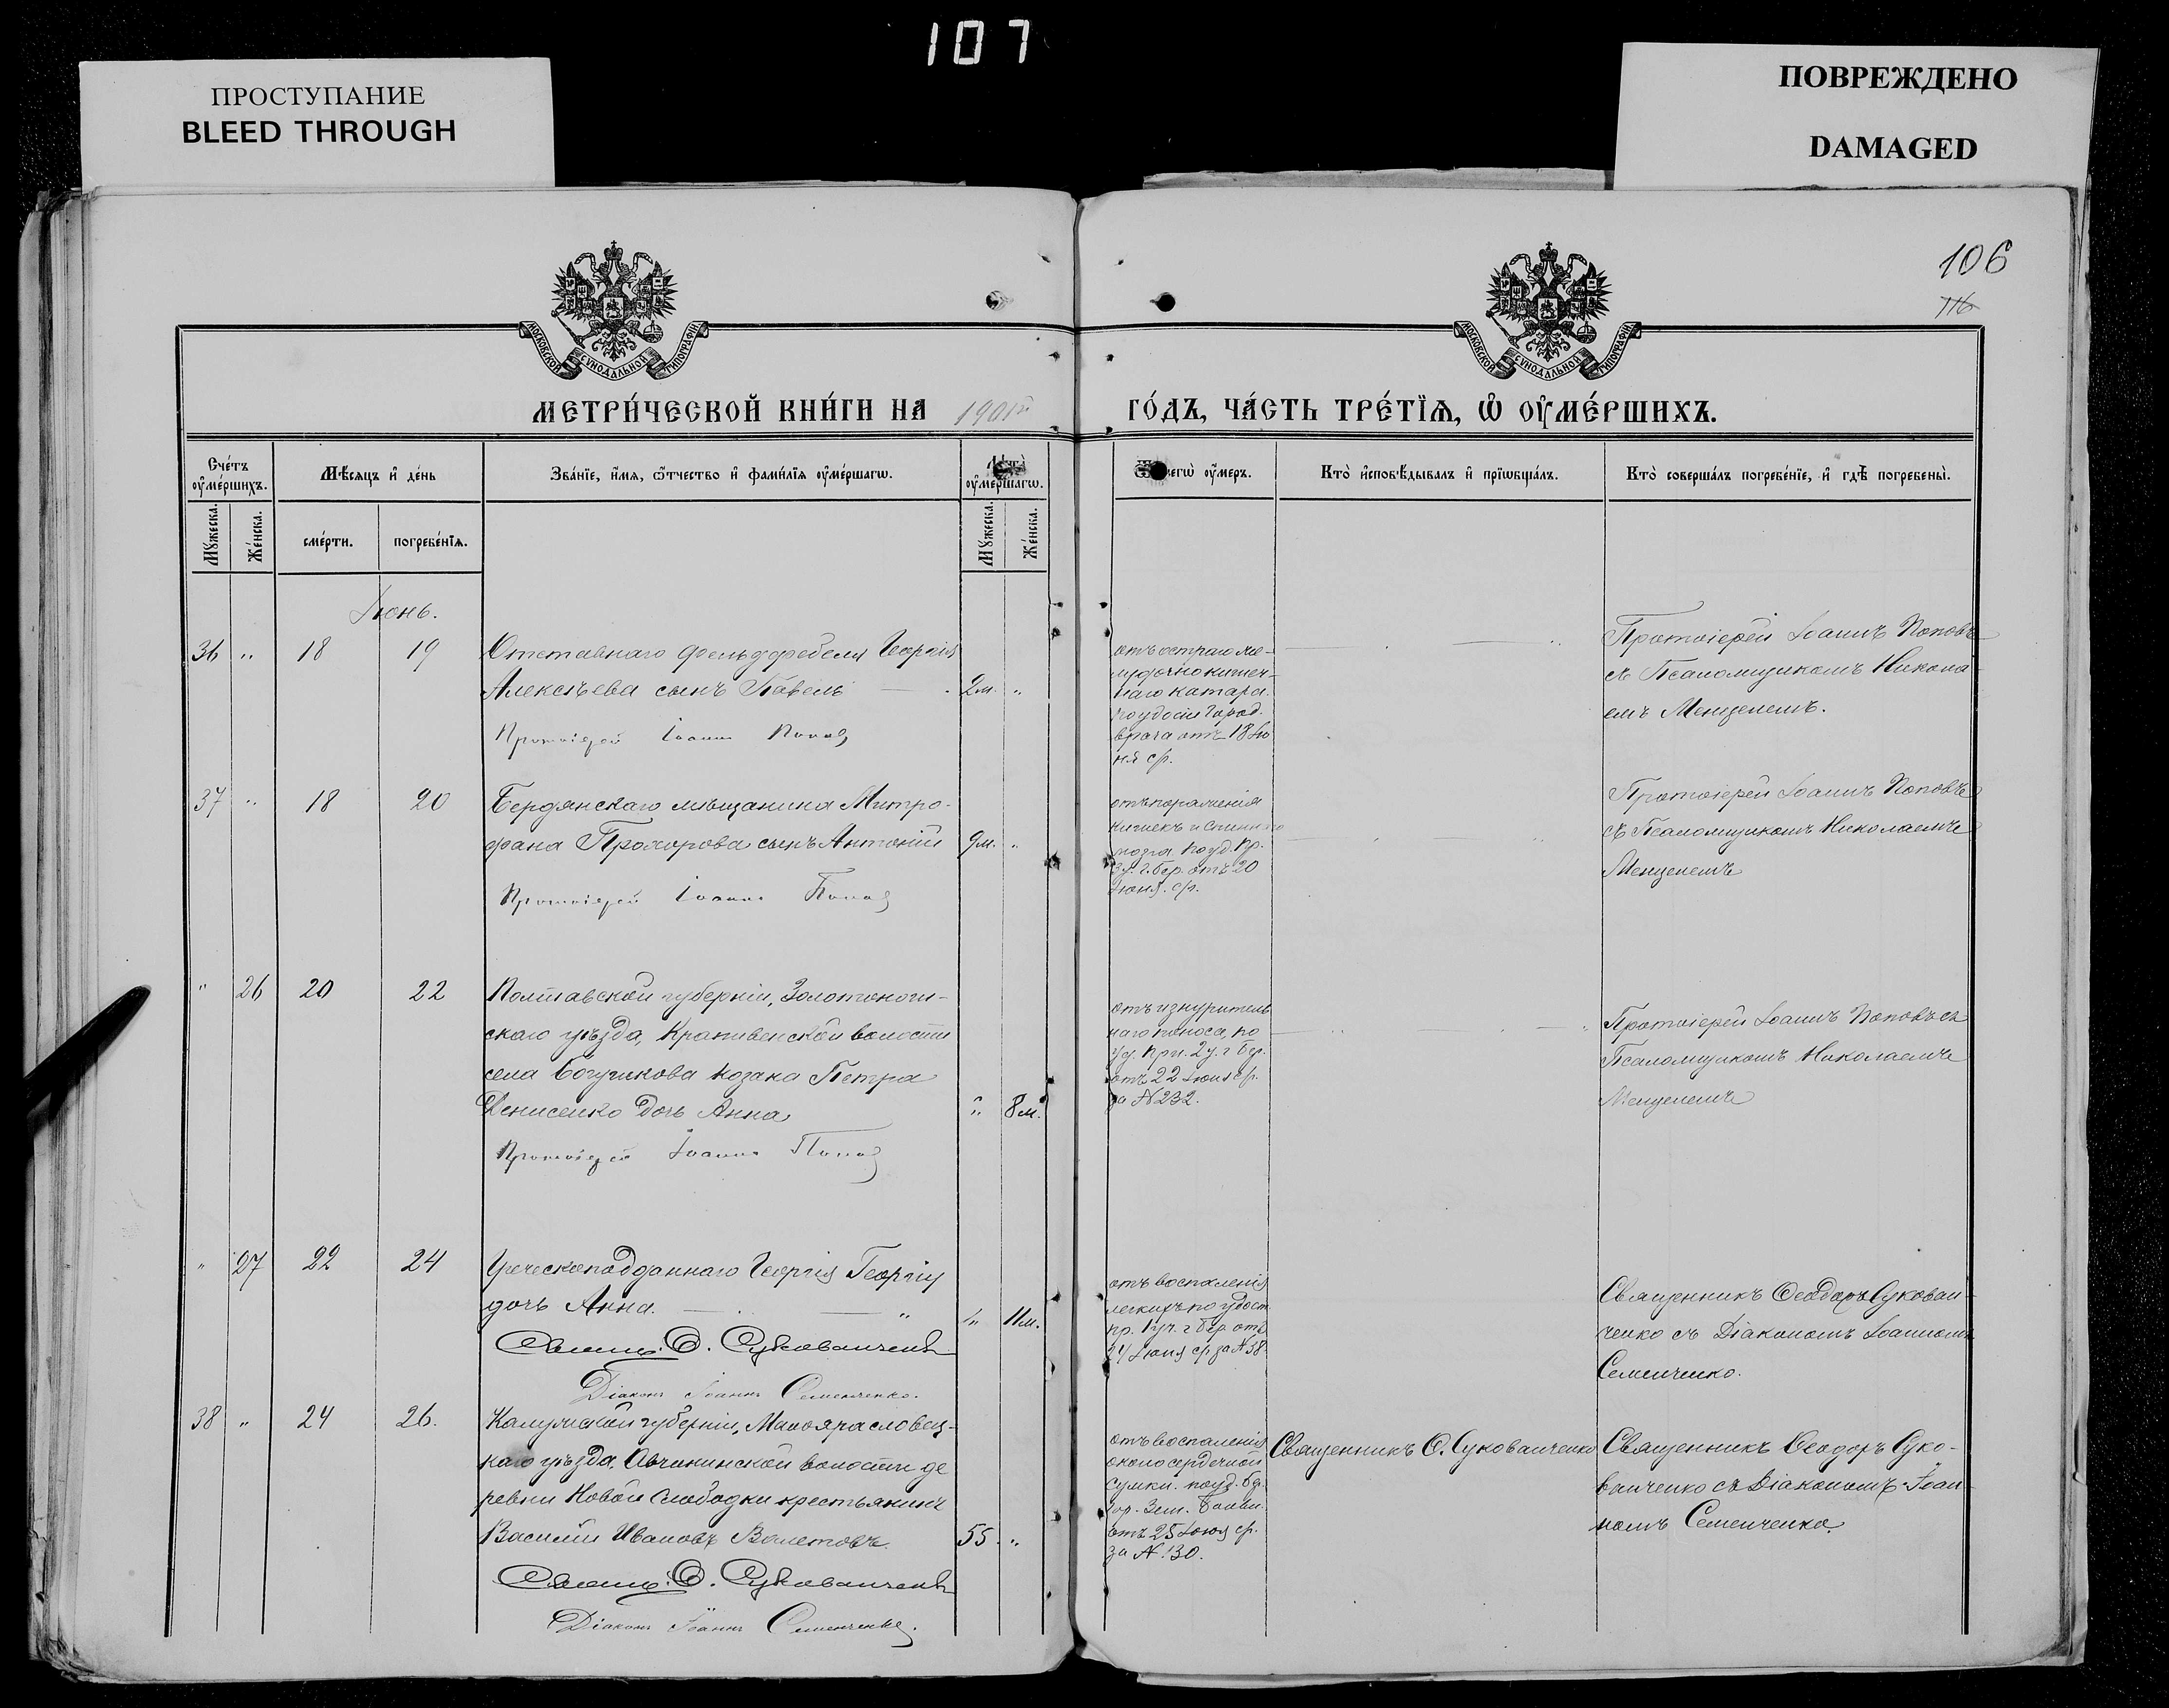 107
ПРОСТУПАНИЕ
BLEED THROUGH
ПОВРЕЖДЕНО
DAMAGED
106
116
МОСКОВСКОЙ СѴНОДАЛЬНОЙ ТИПОГРАФІИ
МОСКОВСКОЙ СѴНОДАЛЬНОЙ ТИПОГРАФІИ
МЕТРИ́ЧЕСКОЙ КНИ́ГИ НА 1901й
ГО́ДЪ, ЧА́СТЬ ТРЕ́ТЇѦ, Ѡ҆ ОУ҆МЕ́РШИХЪ.
Сче́тъ оу҆ме́ршихъ.
Мѣ́сяцъ и҆ де́нь
Зва́нїе, и҆́мя, ѻ҆́тчество и҆ фами́лїя оу҆ме́ршагѡ.
Лѣ́та оу҆ме́ршагѡ.
чегѡ̀ оу҆́меръ.
Кто̀ и҆сповѣ́дывалъ и҆ прїѡбща́лъ.
Кто̀ соверша́лъ погребе́нїе, и҆ гдѣ̀ погребены̀.
Му́жеска.
Же́нска.
сме́рти.
погребе́нїя.
Му́жеска.
Же́нска.
Іюнь.
36 " 18 19
Отставнаго фельдфебеля Георгія
Алексѣева сынъ Павелъ 2 м. "
Протоіерей Іоаннъ Поповъ
отъ остраго же-
лудочно кишеч-
наго катара.
по удост. Город.
врача отъ 18 Ію
ня с/г.
Протоіерей Іоаннъ Поповъ
съ Псаломщикомъ Никола-
емъ Менцелемъ.
37 " 18 20
Бердянскаго мѣщанина Митро-
фана Прохорова сынъ Антоній 9 м. "
Протоіерей Іоаннъ Поповъ
отъ пораженія
кишекъ и спиннаго
мозга по уд. Вр.
2 у. г. Бер. отъ 20
Іюня с/г.
Протоіерей Іоаннъ Поповъ
съ Псаломщикомъ Николаемъ
Менцелемъ
" 26 20 22
Полтавской губерніи, Золотоноги-
скаго уѣзда, Кропивенской волости
села Богушкова козака Петра
Денисенко дочь Анна " 8 м.
Протоіерей Іоаннъ Поповъ
отъ изнуритель
наго поноса, по
уд. Вр. 2 у. г. Бер.
отъ 22 Іюня с/г.
за № 232.
Протоіерей Іоаннъ Поповъ съ
Псаломщикомъ Николаемъ
Менцелемъ
" 27 22 24
Греческоподданнаго Георгія Георгіу
дочь Анна. " 11 м.
Свящ. Ѳ. Сукованченко
Діаконъ Іоаннъ Семенченко.
отъ воспаленія
легкихъ по удост.
вр. 1 уч. г. Бер. отъ
24 Іюня с/г за № 38.
Священникъ Ѳеодоръ Сукован-
ченко съ Діакономъ Іоанномъ
Семенченко.
38 " 24 26.
Калужской губерніи, Малоярасловец-
каго уѣзда, Овчининской волости де
ревни Новой Слободки крестьянинъ
Василій Ивановъ Волетовъ. 55. "
Свящ. Ѳ. Сукованченко
Діаконъ Іоаннъ Семенченко.
отъ воспаленія
околосердечной
сумки. по уд. Бд.
гор. Зем. Больн.
отъ 25 Іюня с/г.
за № 130.
Священникъ Ѳ. Сукованченко
Священникъ Ѳеодоръ Суко-
ванченко съ Діакономъ Іоан-
номъ Семенченко.